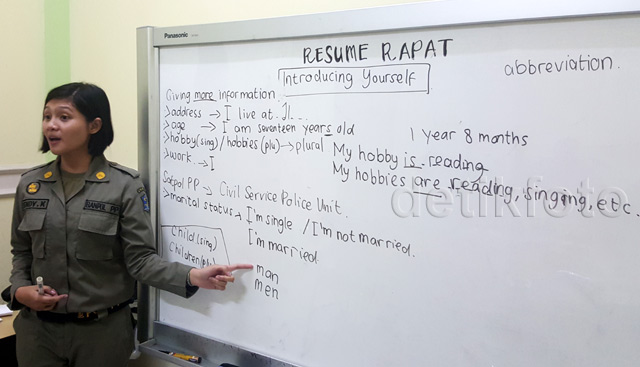 Panasonic
RESUME RAPAT
Introducing Yourself
abbreviation.
Giving more information
>address → I live at Jl...
>age → I am seventeen years old
1 year 8 months
>hobby(sing)/hobbies(plu)→plural
My hobby is reading
My hobbies are reading, singing, etc.
>work → I
Satpol PP → Civil Service Police Unit.
>marital status → I'm single / I'm not married.
I'm married
Child (sing)
Children(plu)
man
men
SATPOL PP
detikfoto